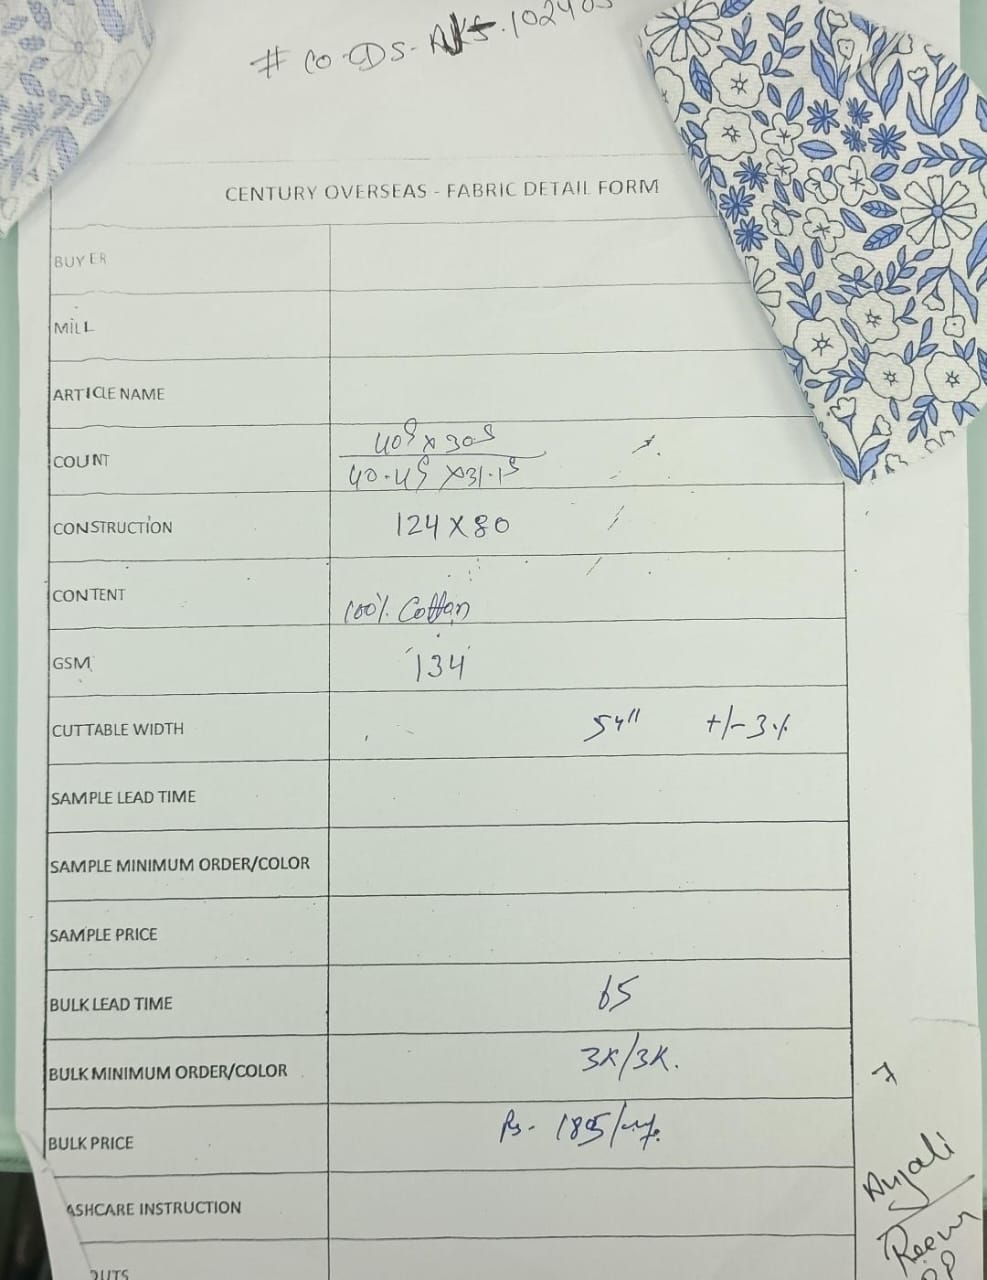 # CO-DS-
CENTURY OVERSEAS - FABRIC DETAIL FORM
BUYER
MILL
ARTICLE NAME
COUNT 40s x 30s
40.4s x 31.1s
CONSTRUCTION 124 X 80
CONTENT 100% Cotton
GSM 134
CUTTABLE WIDTH 54" +/-3%
SAMPLE LEAD TIME
SAMPLE MINIMUM ORDER/COLOR
SAMPLE PRICE
BULK LEAD TIME 65
BULK MINIMUM ORDER/COLOR 3K/3K.
BULK PRICE Rs-
ASHCARE INSTRUCTION
OUTS
Anjali